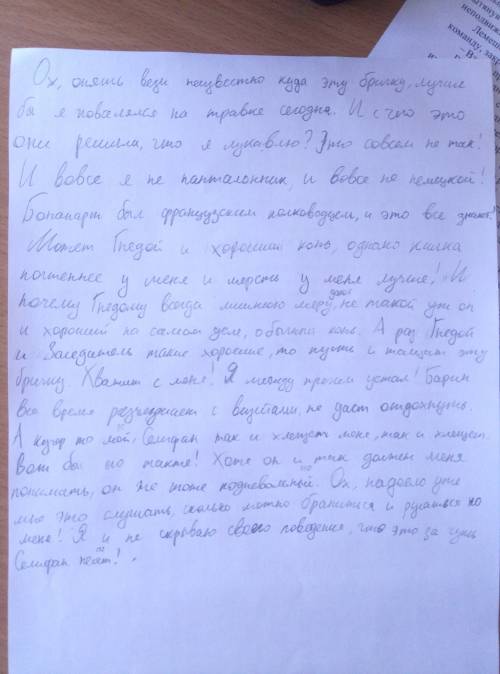 неподвиж
Лемеш
команду, зак
Ох, опять вези неизвестно куда эту бричку, лучше
бы я повалялся на травке сегодня. И с чего это
они решили, что я лукавлю? Это совсем не так!
И вовсе я не панталонник, и вовсе не немецкой!
Бонапарт был французским полководцем, и это все знают!
Может Гнедой и хороший конь, однако кличка
почтеннее у меня и шерсть у меня лучше! И
почему Гнедому всегда лишнюю меру дают, не такой уж он
и хороший на самом деле, обычный конь. А раз Гнедой
и Заседатель такие хорошие, то пусть и тащат эту
бричку. Хватит с меня! Я между прочим устал! Барин
все время разъезжает с визитами, не даст отдохнуть.
А кучер то мой, Селифан так и хлещет меня, так и хлещет.
Вот бы его также! Хотя он и так должен меня
понимать, он же тоже подневольный. Ох, надоело уже
мне это слушать, сколько можно браниться и ругаться на
меня! Я и не скрываю своего поведения, что это за чушь
Селифан несёт!